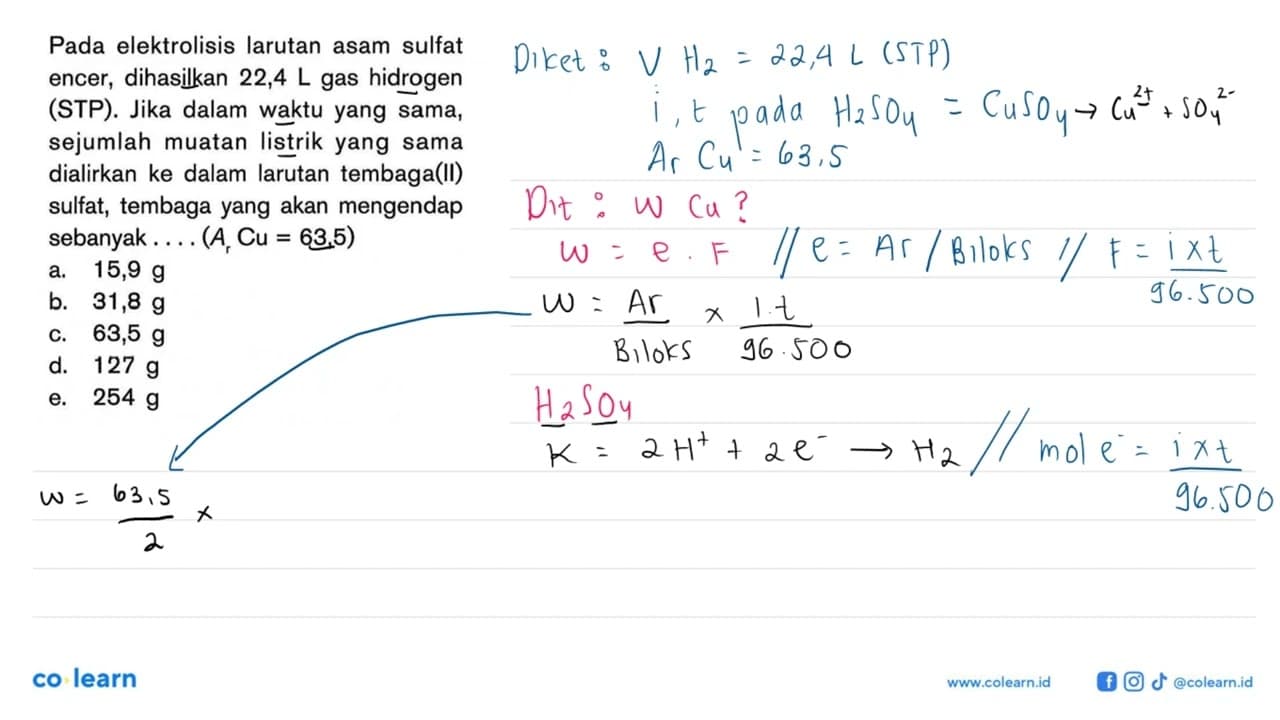 Pada elektrolisis larutan asam sulfat
encer, dihasilkan 22,4 L gas hidrogen
(STP). Jika dalam waktu yang sama,
sejumlah muatan listrik yang sama
dialirkan ke dalam larutan tembaga(II)
sulfat, tembaga yang akan mengendap
sebanyak .... (Aᵣ Cu = 63,5)
a. 15,9 g
b. 31,8 g
c. 63,5 g
d. 127 g
e. 254 g
Diket : V H₂ = 22,4 L (STP)
i, t pada H₂SO₄ = CuSO₄ → Cu²⁺ + SO₄²⁻
Ar Cu = 63,5
Dit : W Cu?
W = e . F // e = Ar / Biloks // F = i x t / 96.500
W = Ar / Biloks x i.t / 96.500
H₂SO₄
K = 2H⁺ + 2e⁻ → H₂ // mol e⁻ = i x t / 96.500
W = 63,5 / 2 x
co learn
www.colearn.id
@colearn.id